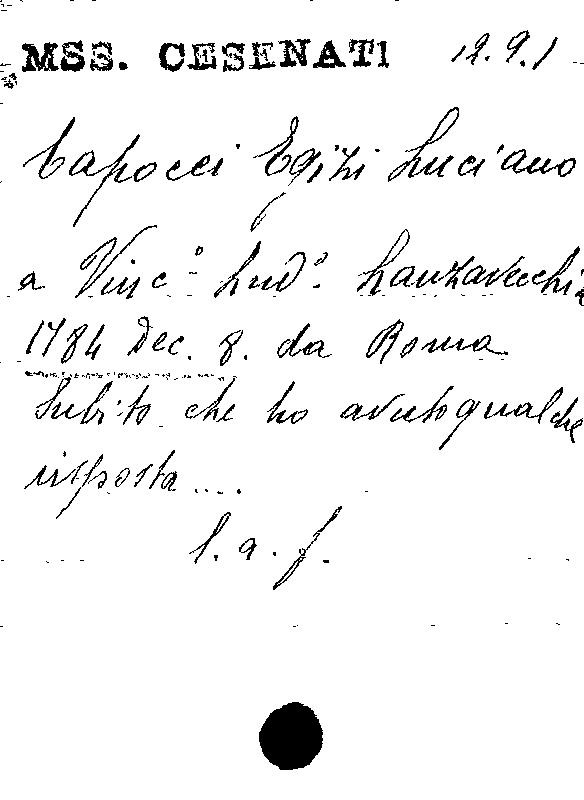 MSS. CESENATI 12.9.1
Capocci Egizi Luciano
a Vinc.º Lud.º Lanzavecchia
1784 Dec. 8. da Roma
Subito che ho avuto qualche
risposta ....
l. a. f.